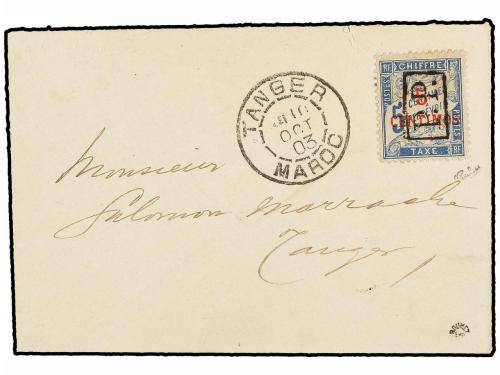 TANGER
10
OCT
03
MAROC
POSTES RF CHIFFRE RF POSTES
5
CENTIMOS
TAXE
Monsieur
Salomon Marrache
Tanger